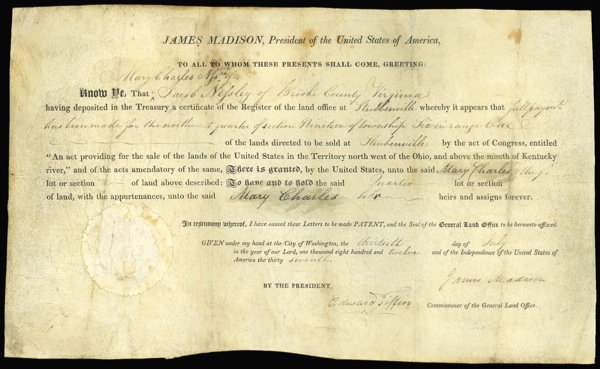 JAMES MADISON, President of the United States of America,
TO ALL TO WHOM THESE PRESENTS SHALL COME, GREETING:
Mary Charles
Know Ye, That Jacob Nessley of Brooke County Virginia
having deposited in the Treasury a certificate of the Register of the land office at Steubenville whereby it appears that full paym't
has been made for the quarter of section Nineteen of township Six in range One
of the lands directed to be sold at Steubenville by the act of Congress, entitled
"An act providing for the sale of the lands of the United States in the Territory north west of the Ohio, and above the mouth of Kentucky
river," and of the acts amendatory of the same, There is granted, by the United States, unto the said Mary Charles
lot or section of land above described: To have and to hold the said Quarter lot or section
of land, with the appurtenances, unto the said Mary Charles her heirs and assigns forever.
In testimony whereof, I have caused these Letters to be made PATENT, and the Seal of the General Land Office to be hereunto affixed.
GIVEN under my hand at the City of Washington, the thirtieth day of July
in the year of our Lord, one thousand eight hundred and twelve and of the Independence of the United States of
America the thirty seventh.
James Madison
BY THE PRESIDENT.
Edward Tiffin Commissioner of the General Land Office.